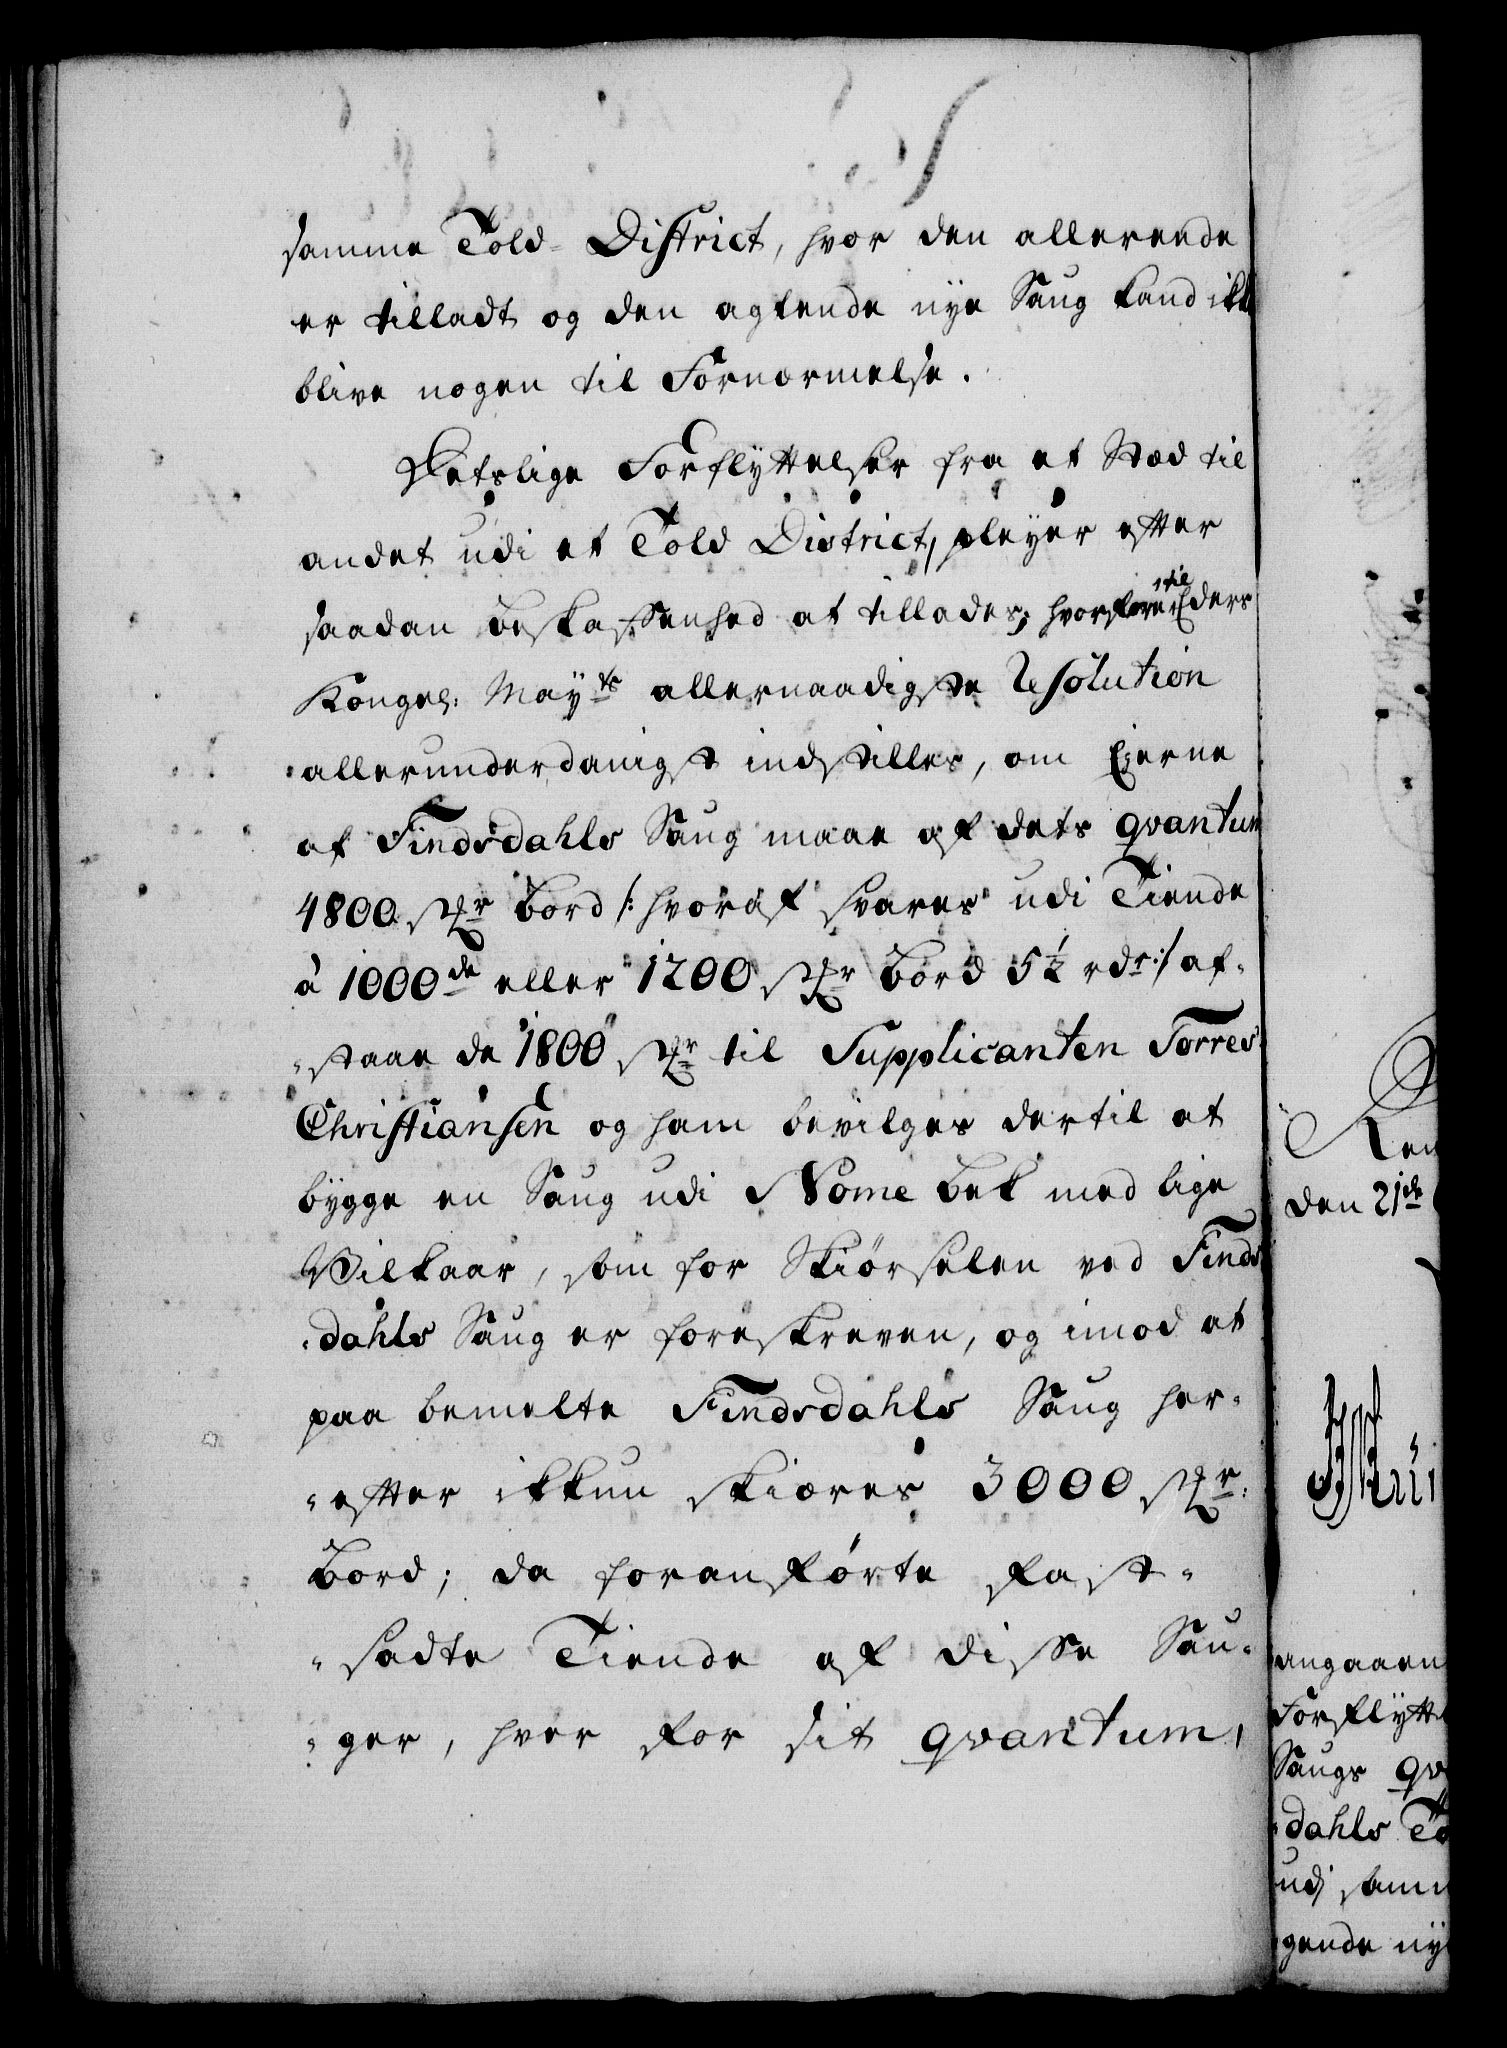 samme Told-District, hvor den allerende
er tilladt og den agtende nye Saug kand ikke
blive nogen til Fornærmelse.
Deslige Forflyttelser fra et Stæd til
andet udi et Told District, pleyer efter
saadan beskaffenhed at tillades; hvorfore til Eders
Kongel: May:ts allernaadigste Resolution
allerunderdanigst indstilles, om Eierne
af Findsdahls Saug maae af dets qvantum
4800 stkr bord /: hvoraf svares udi Tiende
à 1000de eller 1200 stkr Bord 5½ rdr :/ af-
-staae de 1800 stkr til Supplicanten Torres
Christiansen og ham bevilges dertil at
bygge en Saug udi Nome bek med lige
Vilkaar, som for Skiørselen ved Finds
-dahls Saug er foreskreven, og imod at
paa bemelte Findsdahls Saug her-
-efter ikkun skiæres 3000 stkr:
Bord; da foranførte fast-
-sadte Tiende af disse Sau-
-ger, hver for sit qvantum,
den 21de
angaaen
Forflytt
Saugs qv
-dahls To
udi samm
gende ny